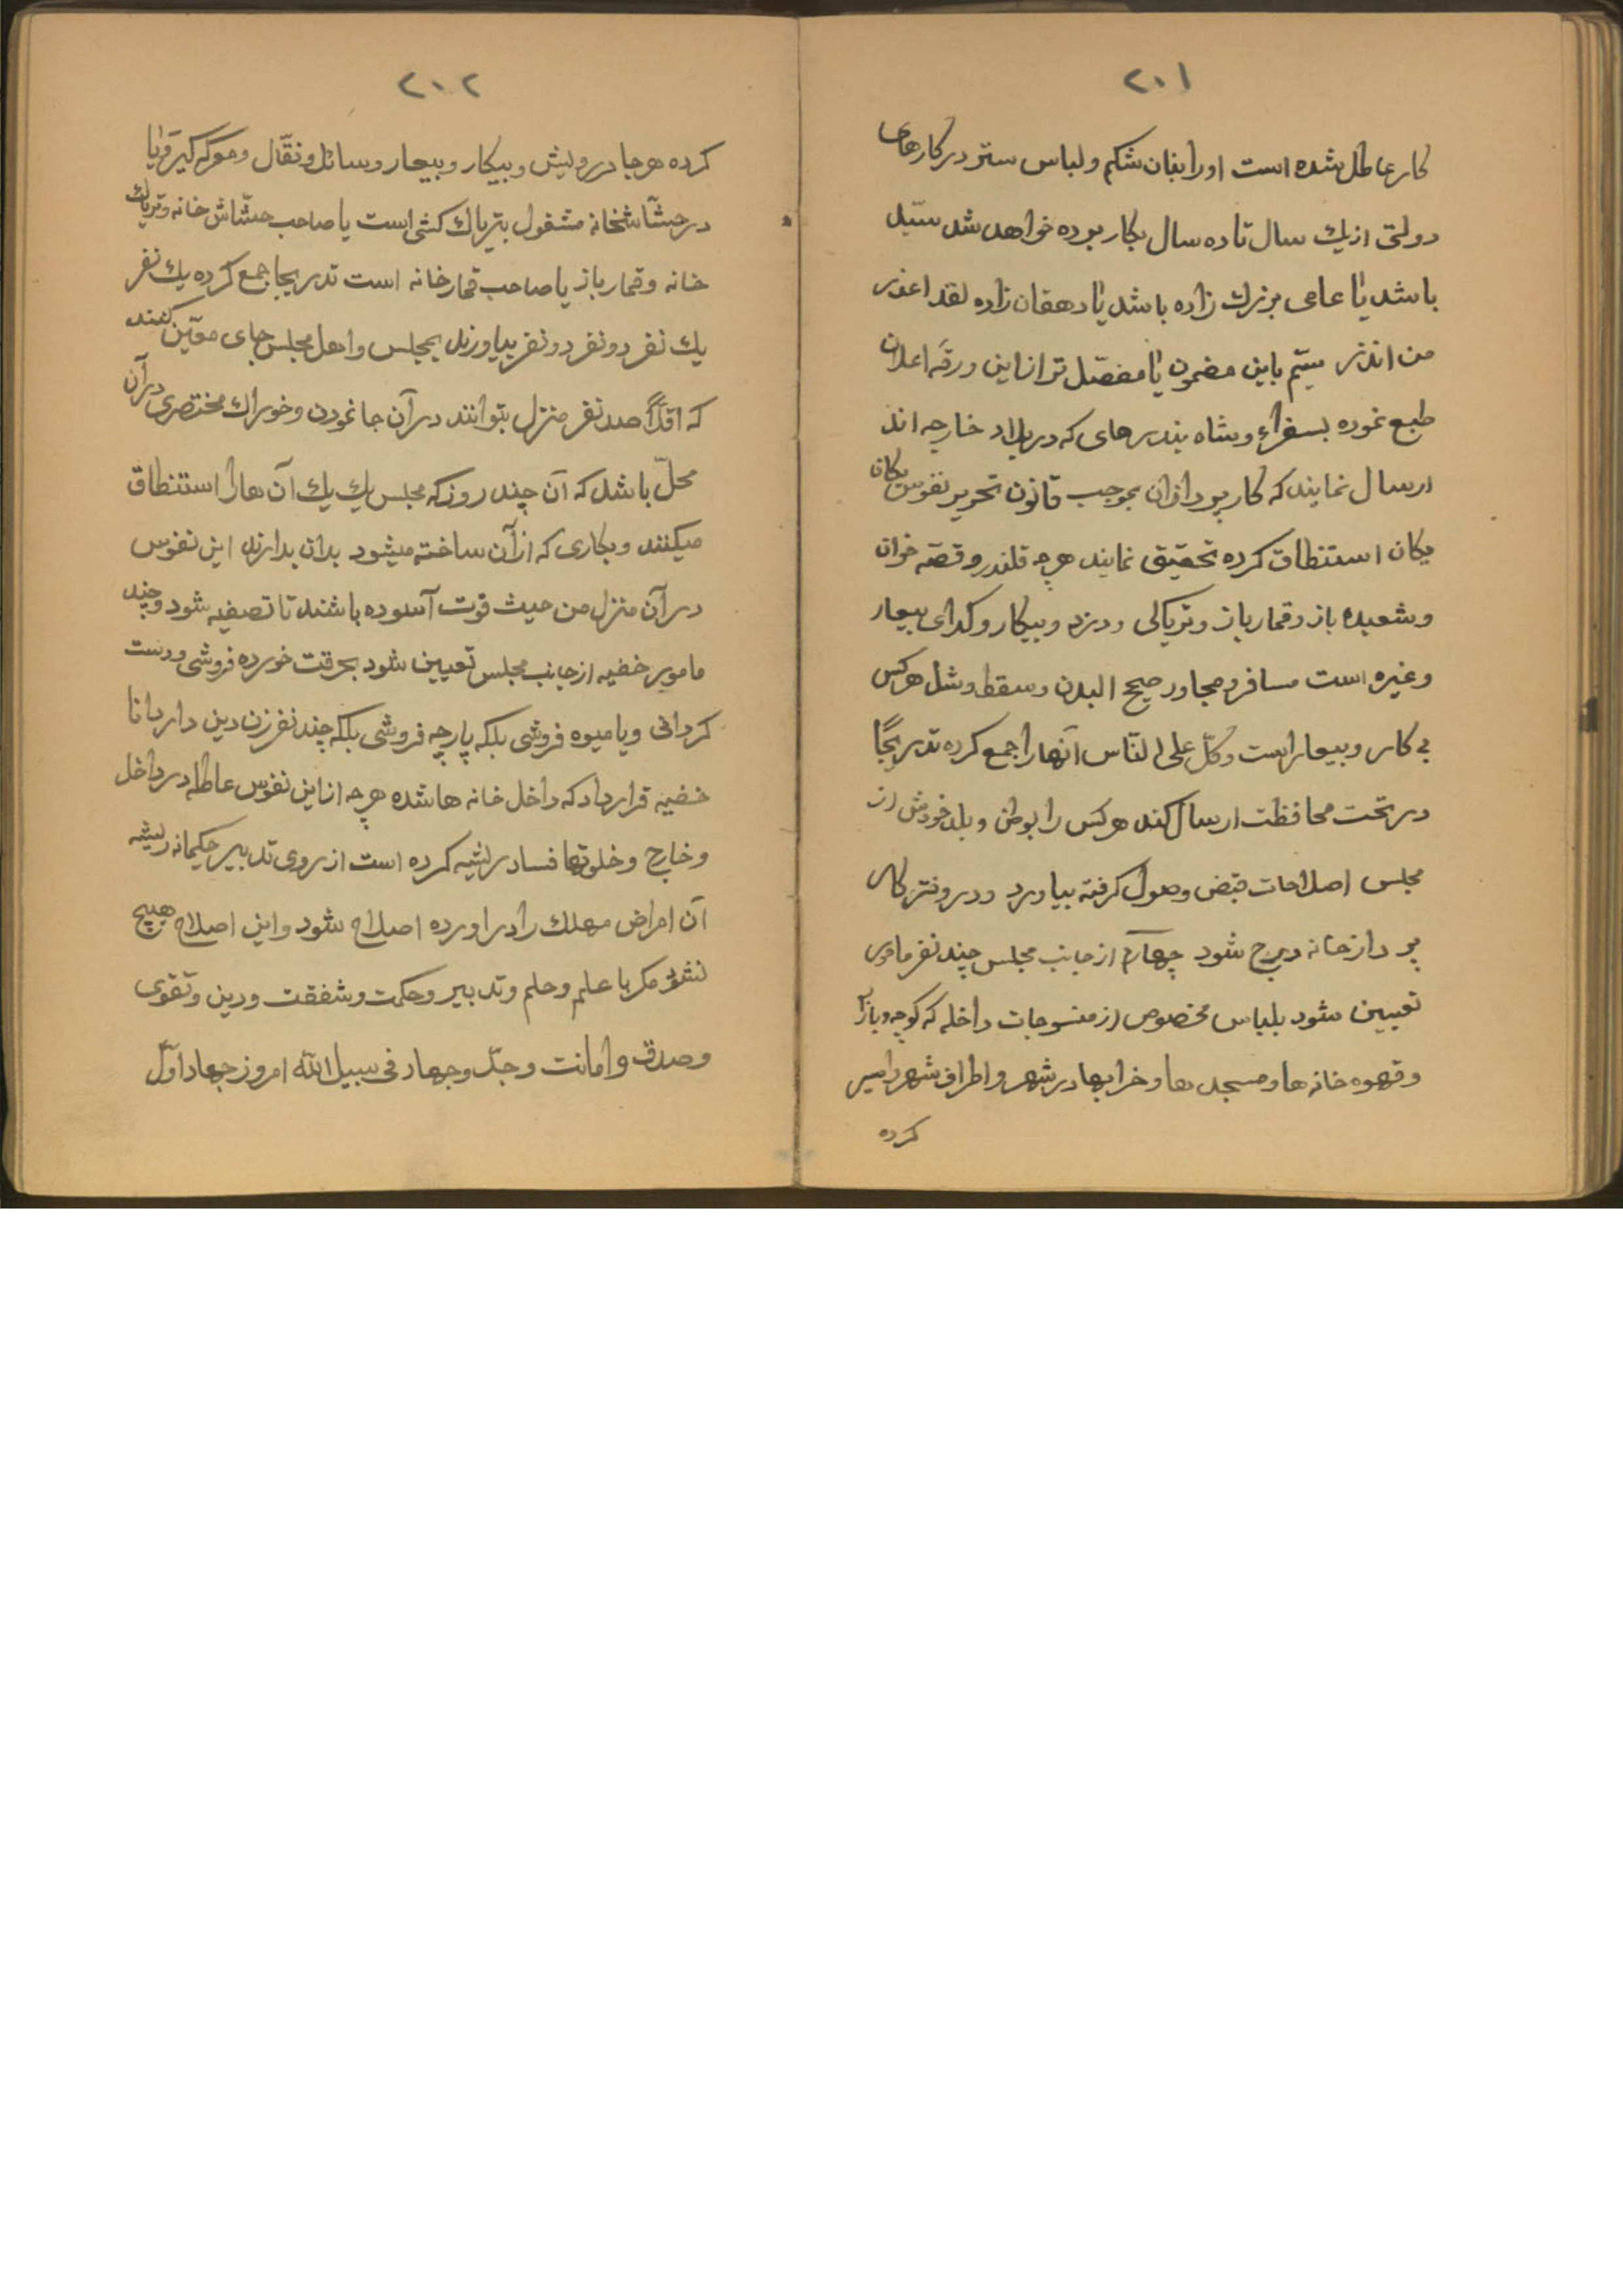 ۲۰۱
کار عاطل شده است اورا بنان شکم و لباس ستر در کارهای
دولتی از یك سال تا ده سال بکار برده خواهد شد سیّد
باشد یا عامی بزرك زاده باشد یا دهقان زاده لقد اعذر
من انذر سیّم باین مضمون یا مفصّل تر از این ورقه اعلان
طبع نموده بسفراء و شاه بندرهای که در بلاد خارجه اند
ارسال نمایند که کار پردازان بموجب قانون تحریر نفوس یکان
یکان استنطاق کرده تحقیق نمایند هرچه قلندر و قصّه خوان
و شعبده باز و قمار باز و تریاکی و دزد و بیکار و کدای بیعار
و غیره است مسافر و مجاور صحیح البدن و سقط و شل هر کس
بی کار و بیعار است و کلّ علی الناس آنها را جمع کرده تدریجًا
در تحت محافظت ارسال کند هر کس را بوطن و بلد خودش از
مجلس اصلاحات قبض وصول کرفته بیاورد و در دفتر کار
پرداز خانه درج شود چهارم از جانب مجلس چند نفر مامور
تعیین شود بلباس مخصوص از منسوجات داخله که کوچه و بازار
و قهوه خانه ها و مسجد ها و خرابها در شهر و اطراف شهر را سیر
کرده
۲۰۲
کرده هر جا درویش و بیکار و بیعار و سائل و نقّال و معرکه کیر و یا
در حشّاشخانه مشغول بتریاك کشی است یا صاحب حشّاش خانه و تریاك
خانه و قمار باز یا صاحب قمار خانه است تدریجا جمع کرده یك نفر
یك نفر دو نفر دو نفر بیاورند بمجلس و اهل مجلس جای معیّن کنند
که اقلّاً صد نفر منزل بتوانند در آن جا نمودن و خوراك مختصری در آن
محلّ باشد که آن چند روز که مجلس یك یك آن ها را استنطاق
میکنند و بکاری که از آن ساخته میشود بدان بدارند این نفوس
در آن منزل من حیث قوت آسوده باشند تا تصفیه شود و چند
مامور خفیه از جانب مجلس تعیین شود بحرقت خورده فروشی و دست
کردانی و یا میوه فروشی بلکه پارچه فروشی بلکه چند نفر زن دین دار دانا
خفیه قرار داد که داخل خانه ها شده هرچه از این نفوس عاطله در داخل
و خارج و خلوتها فساد ریشه کرده است از روی تدبیر حکیمانه ریشه
آن امراض مهلك را در اورده اصلاح شود و این اصلاح هیچ
نشود مکر با علم و حلم و تدبیر و حکمت و شفقت و دین و تقوی
و صدق و امانت و جدّ و جهاد فی سبیل الله امروز جهاد اوّل